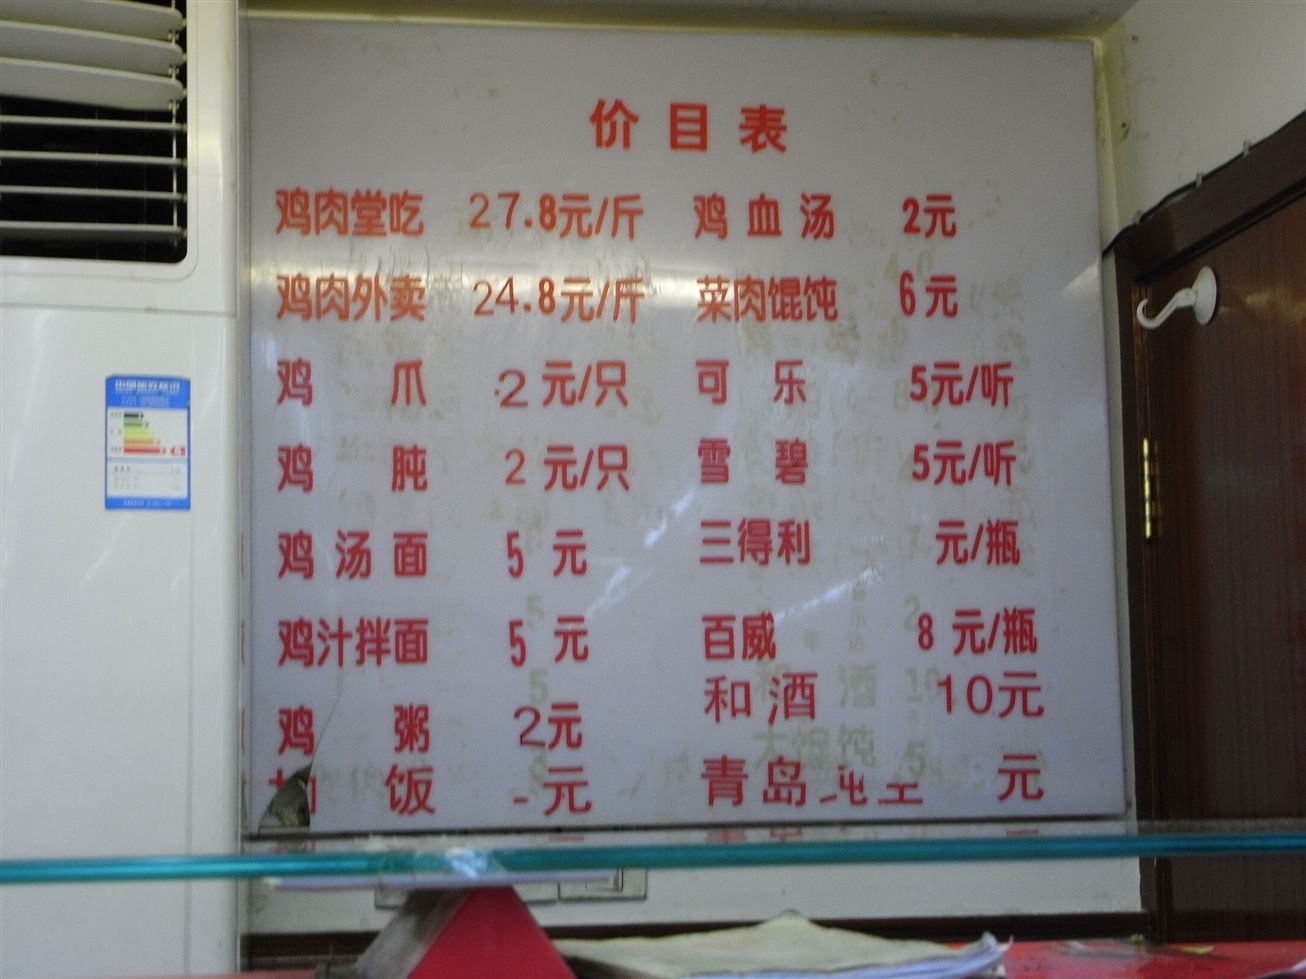 价目表
鸡肉堂吃 27.8元/斤 鸡血汤 2元
鸡肉外卖 24.8元/斤 菜肉馄饨 6元
鸡爪 2元/只 可乐 5元/听
鸡肫 2元/只 雪碧 5元/听
鸡汤面 5元 三得利 元/瓶
鸡汁拌面 5元 百威 8元/瓶
鸡粥 2元 和酒 10元
饭 元 青岛纯 元